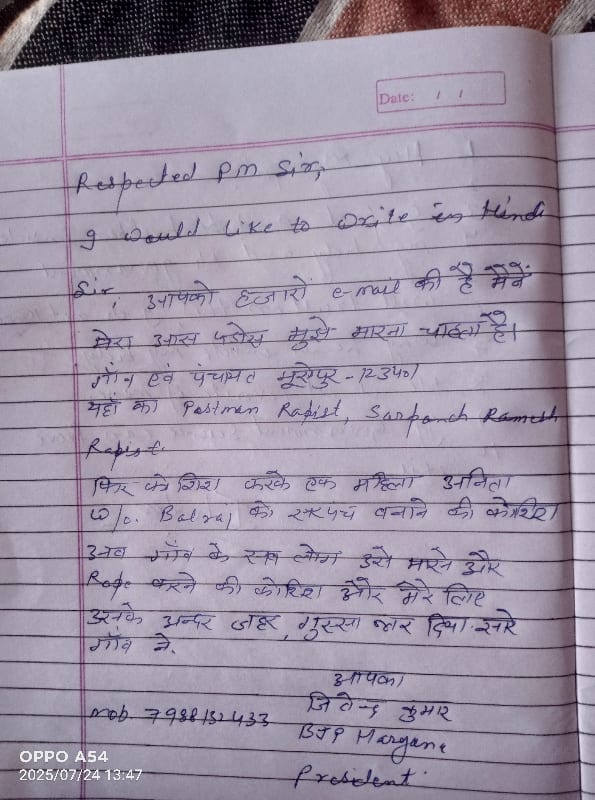 Date: / /
Respected PM Sir,
I would like to write in Hindi
Sir, आपको हजारों e-mail की है मैनें
मेरा आस पडोस मुझे मारना चाहता है।
गाँव एवं पंचायत मूसेपुर - 123401
यहाँ का Postman Rapist, Sarpanch Ramesh
Rapist.
फिर कोशिश करके एक महिला अनिता
W/o. Balraj को सरपंच बनाने की कोशिश
अब गाँव के सब लोग उसे मारने और
Rape करने की कोशिश और मेरे लिए
उसके अन्दर जहर, गुस्सा भर दिया सारे
गाँव ने.
आपका
जितेन्द्र कुमार
Mob. 7988132433
BJP Haryana
President
OPPO A54
2025/07/24 13:47